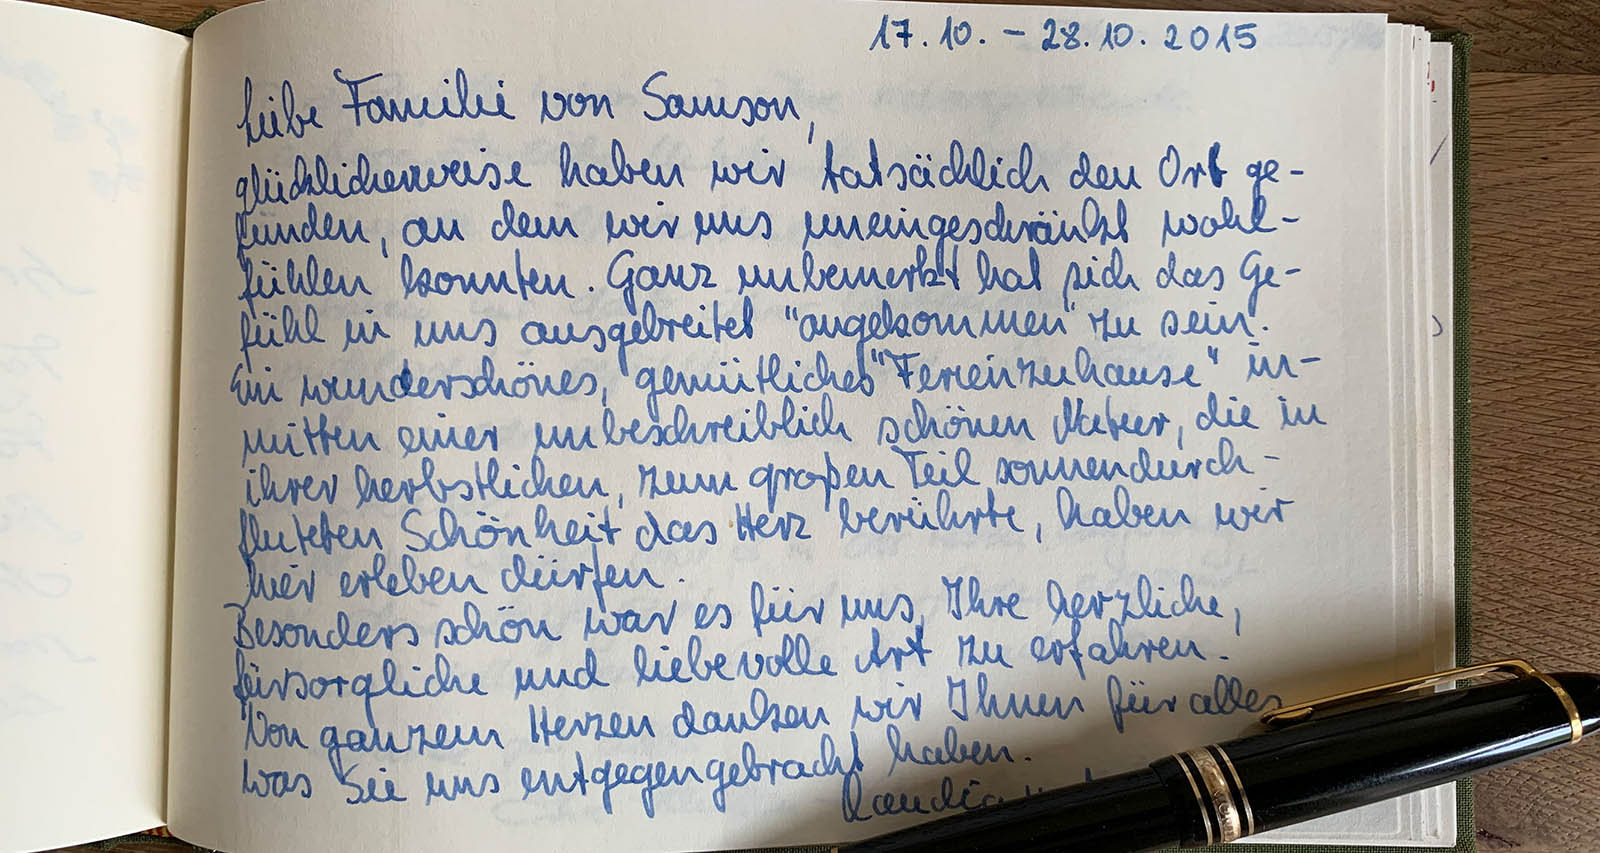 17.10. – 28.10.2015
Liebe Familie von Samson,
glücklicherweise haben wir tatsächlich den Ort ge-
funden, an dem wir uns uneingeschränkt wohl-
fühlen konnten. Ganz unbemerkt hat sich das Ge-
fühl in uns ausgebreitet "angekommen" zu sein.
Ein wunderschönes, gemütliches "Ferienzuhause" in-
mitten einer unbeschreiblich schönen Natur, die in
ihrer herbstlichen, zum großen Teil sonnendurch-
fluteten Schönheit das Herz berührte, haben wir
hier erleben dürfen.
Besonders schön war es für uns, Ihre herzliche,
fürsorgliche und liebevolle Art zu erfahren.
Von ganzem Herzen danken wir Ihnen für alles
was Sie uns entgegengebracht haben.
Claudia